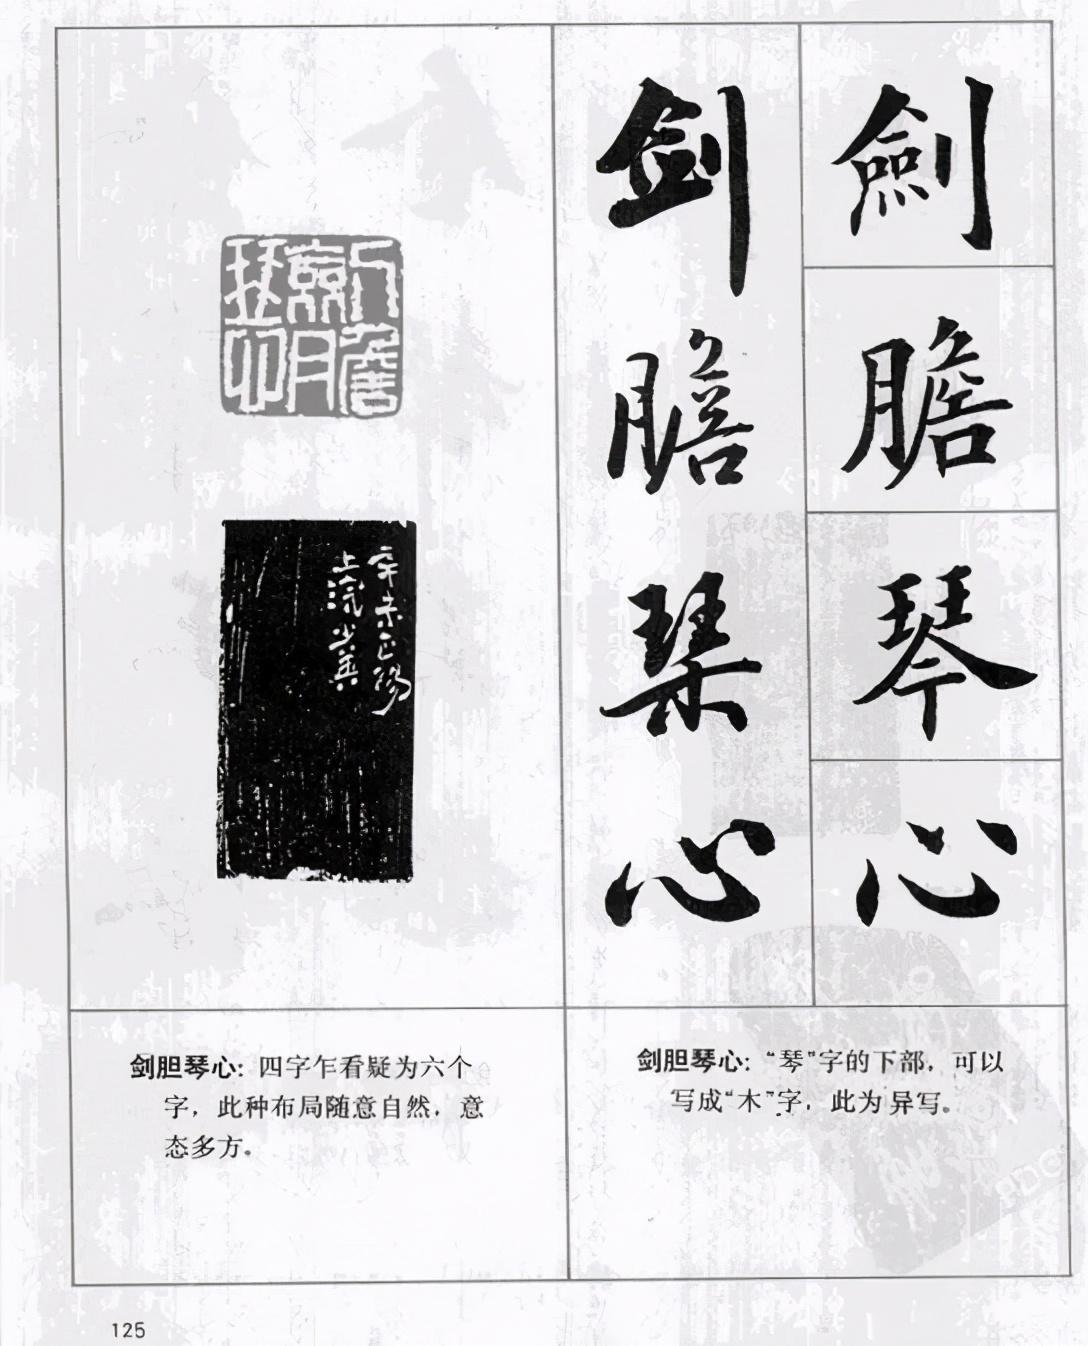 劍
膽
琴
心
劍膽琴心
辛未正陽
上浣少眞
剑胆琴心：四字乍看疑为六个
字，此种布局随意自然，意
态多方。
剑胆琴心：“琴”字的下部，可以
写成“木”字，此为异写。
125